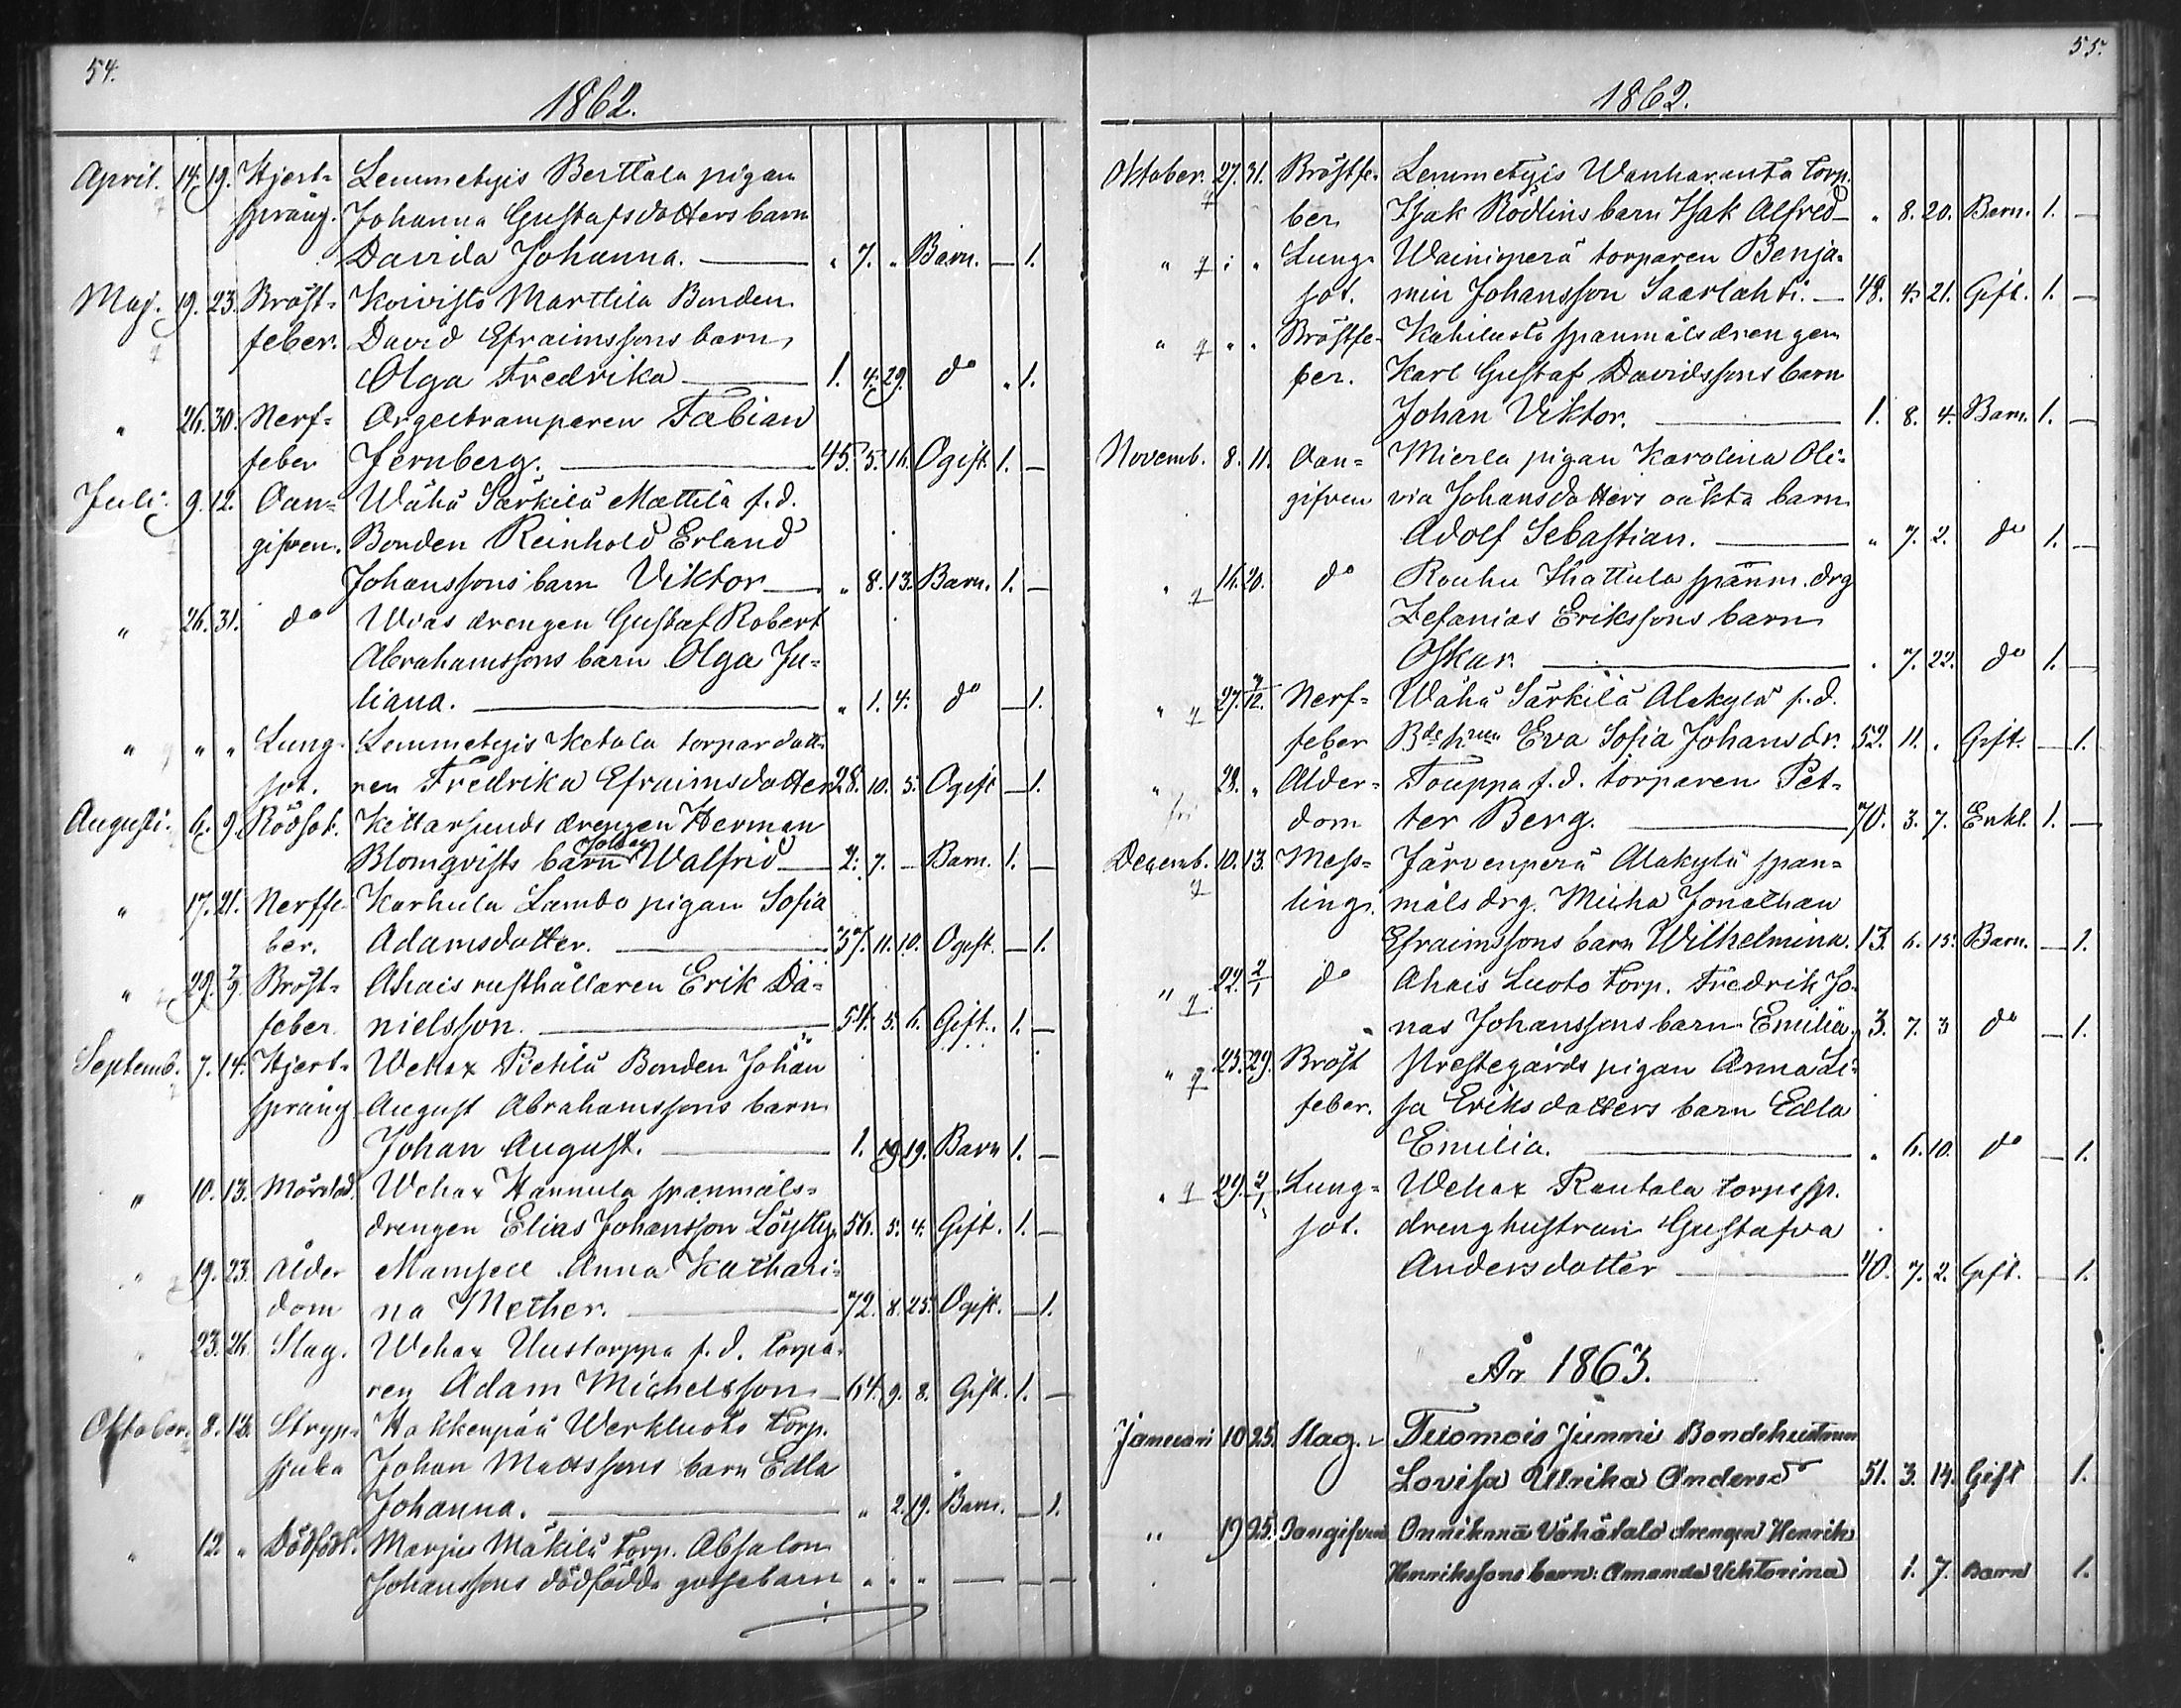 54.
1862.
April. 14. 19. Hjert- Lemmetyis Berttala pigan
språng. Johanna Gustafsdotters barn
Davida Johanna. — " 7. " Barn. — 1.
Maj. 19. 23. Bröst- Koivisto Marttila Bonden
feber. David Efraimssons barn
Olga Fredrika — 1. 4. 29. do " 1.
" 26. 30. Nerf- Orgeltramparen Fabian
feber Jernberg. — 45. 5. 16. Ogift 1. —
Juli. 9. 12. Oan- Wähä Särkilä Mattila f.d.
gifven. Bonden Reinhold Erland
Johanssons barn Viktor — " 8. 13. Barn. 1. —
" 26. 31. do Wias drengen Gustaf Robert
Abrahamssons barn Olga Ju-
liana. — " 1. 4. do — 1.
" " " Lung- Lemmetyis Ketala torpardott-
sot. ren Fredrika Efraimsdotter 28. 10. 5. Ogift — 1.
Augusti. 6. 9. Rödsot. Kittarsunds drengen Herman
Blomqvists barn Walfrid — 2. 7. — Barn. 1. —
" 17. 21. Nerffe- Karhula Lambo pigan Sofia
ber. Adamsdotter. — 37. 11. 10. Ogift. — 1.
" 29. 2/9. Bröst- Ahais rusthållaren Erik Da-
feber. nielsson. — 54. 5. 6. Gift. 1. —
Septemb. 7. 14. Hjert- Wehax Pietilä Bonden Johan
språng August Abrahamssons barn
Johan August. — 1. 19. Barn 1. —
" 10. 13. Mördad. Wehax Hannula spanmåls-
drengen Elias Johansson Löytty. 56. 5. 4. Gift. 1. —
" 19. 23. Ålder Mamsell Anna Kathari-
dom na Mether. — 72. 8. 25. Ogift. — 1.
" 23. 26. Slag. Wehax Uustorppa f.d. torpa-
ren Adam Michelsson — 64. 9. 8. Gift. 1. —
Oktober. 8. 12. Stryp- Hakkenpää Werkluoto torp.
sjuka Johan Mattssons barn Edla
Johanna. — " 2. 19. Barn. — 1.
" 12. " Dödfödt. Marjus Mäkilä torp. Absalon
Johanssons dödfödda gossebarn " " " — — —
55.
1862.
Oktober. 27. 31. Bröstfe- Lemmetyis Wanharanta torp.
ber Isak Rödlins barn Isak Alfred — " 8. 20. Barn. 1. —
" " " Lung- Wainionperä torparen Benja-
sot. min Johansson Saarlahti. — 48. 4. 21. Gift. 1. —
" " " Bröstfe- Kahiluoto spanmålsdrengen
ber. Karl Gustaf Davidssons barn
Johan Viktor. — 1. 8. 4. Barn. 1. —
Novemb. 8. 11. Oan- Mierla pigan Karolina Oli-
gifven via Johansdotters oäkta barn
Adolf Sebastian. — " 7. 2. do 1. —
" 16. 20. do Rouhu Ihattula spanm. drg
Zefanias Erikssons barn
Oskar. — " 7. 22. do 1. —
" 27. 7/12. Nerf- Wähä Särkilä Alakylä f.d.
feber Bdehrun Eva Sofia Johansdr. 52. 11. " Gift. — 1.
" 28. " Ålder- Touppa f.d. torparen Pet-
dom ter Berg. — 70. 3. 7. Enkl. 1. —
Decemb. 10. 13. Mess- Järvenperä Alakylä span-
ling. måls drg. Micha Jonathan
Efraimssons barn Wilhelmina. 13. 6. 15. Barn. — 1.
" 22. 2/1 do Ahais Luoto torp. Fredrik Jo-
nas Johanssons barn Emilia. 3. 7. 3 do — 1.
" 25. 29. Bröst Prestegårds pigan Anna Li-
feber. sa Eriksdotters barn Edla
Emilia. — " 6. 10. do — 1.
" 29. 2/1. Lung- Wehax Rautala torps sp.
sot. drenghustrun Gustafva
Andersdotter — 40. 7. 2. Gift. — 1.
År 1863.
Januari 10 25. Slag. Tuomois Junni Bondehustrun
Lovisa Ulrika Andersdr 51. 3. 14. Gift 1.
" 19 25. Oangifven Onnikmaa Vähätalo drengen Henrik
Henrikssons barn: Amanda Viktorina 1. 7. Barn 1.